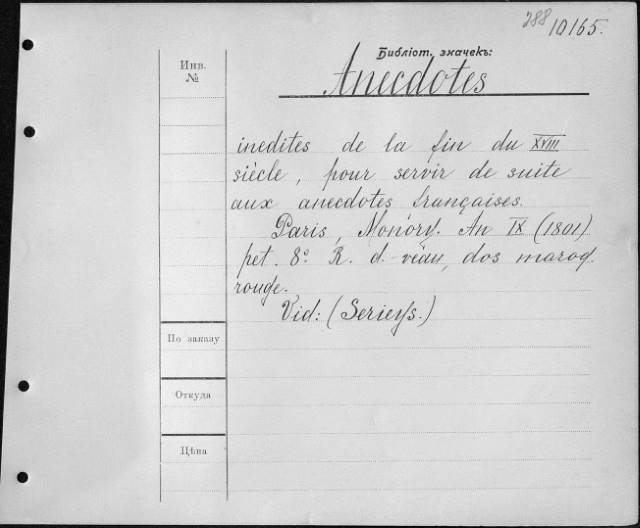 288 10165.
Библіот. значекъ:
Инв.
№
Anecdotes
inedites de la fin du XVIII
siècle, pour servir de suite
aux anecdotes françaises.
Paris, Monory. An IX (1801)
pet. 8º R. d. veau, dos maroq.
rouge.
Vid: (Serieys.)
По заказу
Откуда
Цѣна